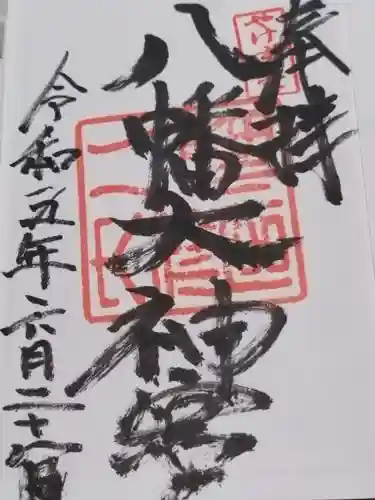 奉拝
八幡大神宮
令和五年六月二十八日